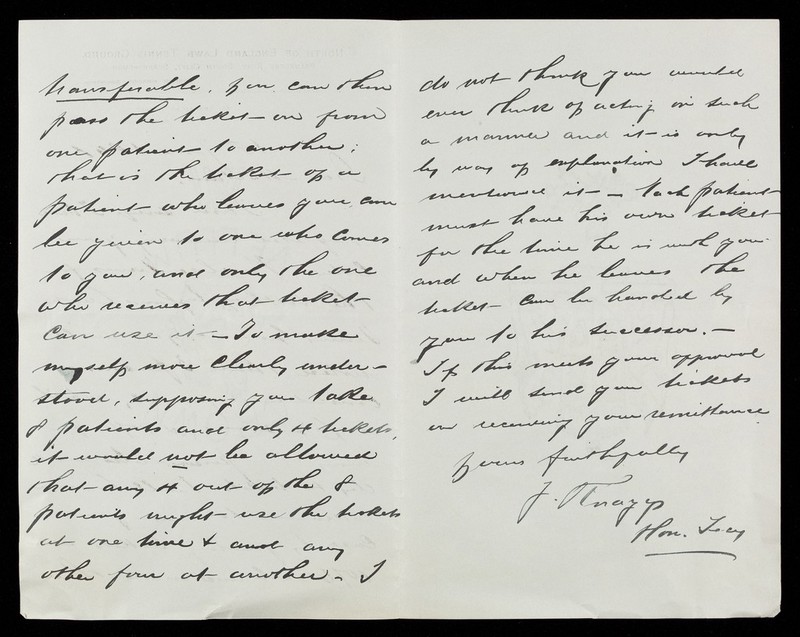 transferable. you can then
pass the ticket on from
one patient to another;
that is the ticket of a
patient who leaves you can
be given to one who comes
to you, and only the one
who receives that ticket
can use it — To make
myself more clearly under-
stood, supposing you take
8 patients and only 4 tickets,
it would not be allowed
that any 4 out of the 8
patients might use the tickets
at one time & and any
other four at another. I
do not think you would
ever think of acting in such
a manner and it is only
by way of explanation I have
mentioned it — Each patient
must have his own ticket
for the time he is with you
and when he leaves the
ticket can be handed by
you to his successor. —
If this meets your approval
I will send you tickets
on receiving your remittance
Yours faithfully
J.
Hon. Secy